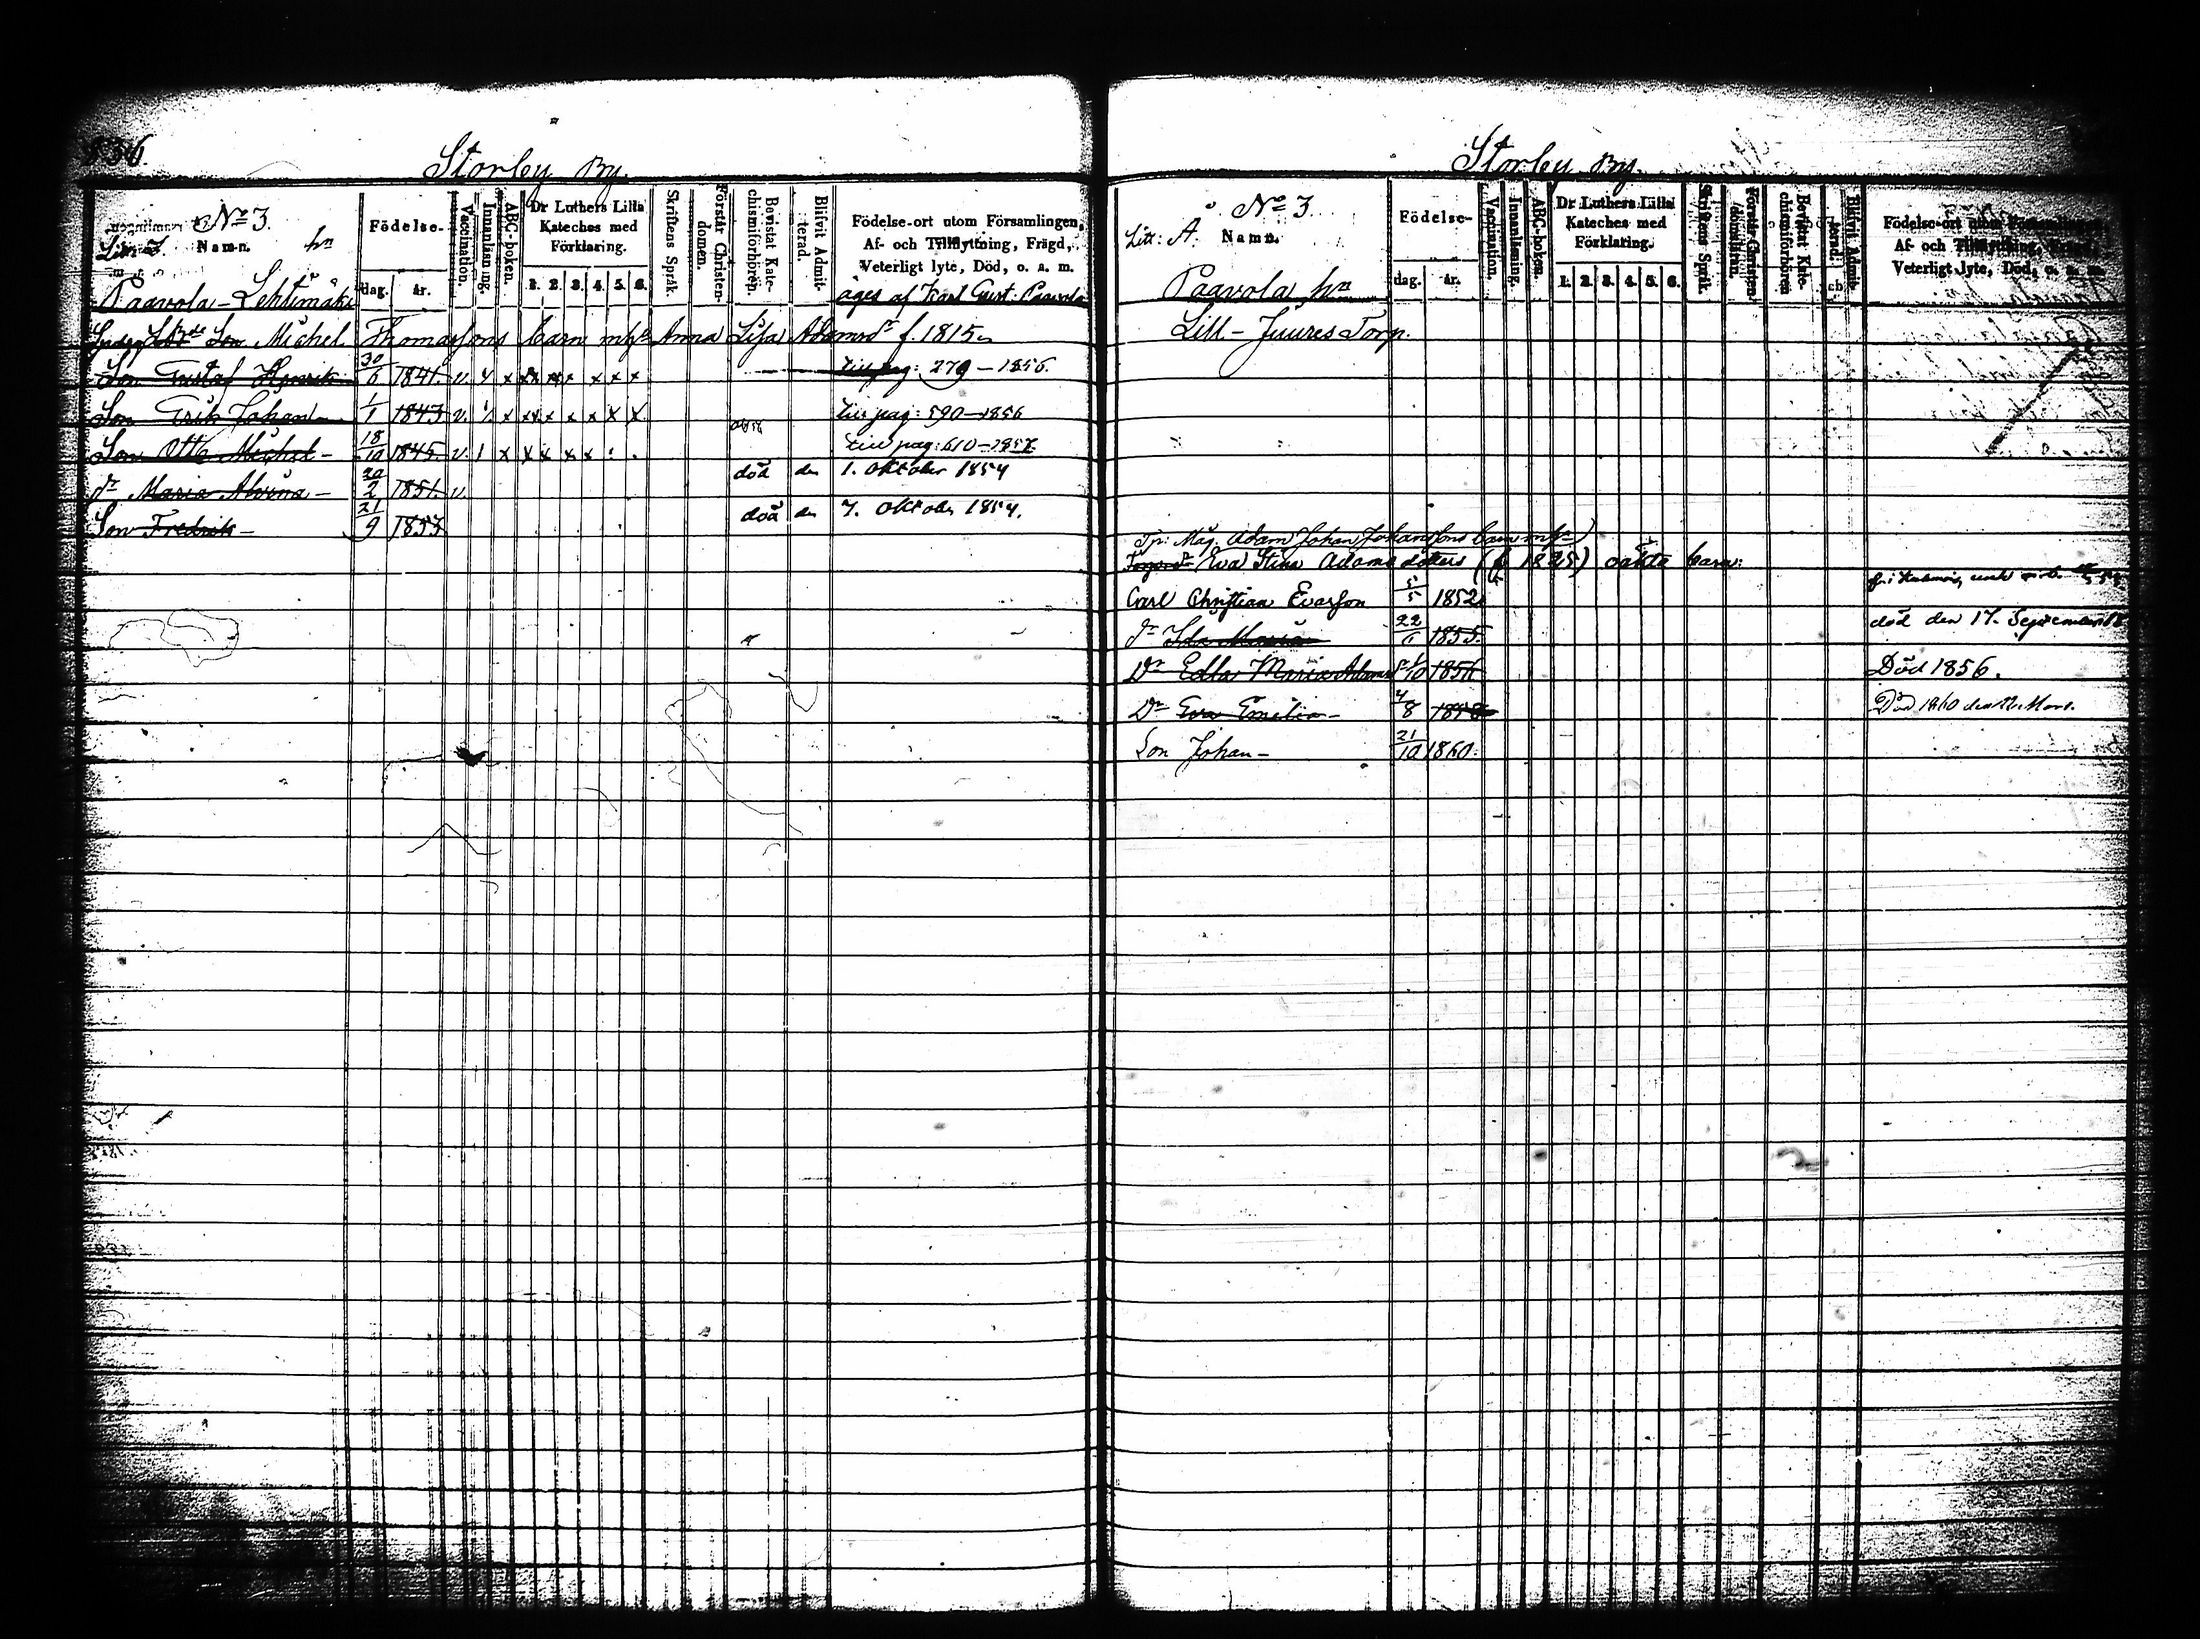 Storby By.
No 3.
Namn.
hn
Födelse-
dag.
år.
Vaccination.
Innanläsning.
ABC-boken.
Dr Luthers Lilla Kateches med Förklaring.
1. 2. 3. 4. 5. 6.
Skriftens Språk.
Förstår Christendomen.
Bevistat Katechismiförhören.
Blifvit Admitterad.
Födelse-ort utom Församlingen,
Af- och Tillflyttning, Frägd,
Veterligt lyte, Död, o. a. m.
Paavola-Lehtimäki
äges af Karl Gust. Paavola
Son Michel Thomassons barn m. h. Anna Lisa Adamsdr f. 1815
Son Gustaf Henrik 30/6 1841. v. x x x x x x x till pag: 279-1856.
Son Erik Johan 1/1 1843 v. x x x x x x x till pag: 590-1856
Son Otto Michel 18/10 1845. v. 1 x x x x x till pag: 610-1857
dr Maria Alvina 20/2 1851. v. död den 1. Oktober 1854
Son Fredrik 21/9 1853 död den 7. Oktober 1854.
Storby By.
No 3.
Litt: A.
Namn.
Födelse-
dag.
år.
Vaccination.
Innanläsning.
ABC-boken.
Dr Luthers Lilla Kateches med Förklaring.
1. 2. 3. 4. 5. 6.
Skriftens Språk.
Förstår Christendomen.
Bevistat Katechismiförhören
Blifvit Admitterad.
Födelse-ort utom Församlingen
Af- och Tillflyttning, Frägd,
Veterligt lyte, Död, o. a. m.
Paavola hn
Lill-Juures Torp.
Tp: Måg. Adam Johan Johanssons barn m. h.
Eva Stina Adamsdotters (f 1825) oäkta barn:
Carl Christian Evasson 5/5 1852
dr Ida Maria 22/1 1855. död den 17. September
Dr Edla Maria Adamsdr 1/10 1856 Död 1856.
Dr Eva Emelia 4/8 1858 Död 1860 den 12. Mars.
Son Johan 21/10 1860.